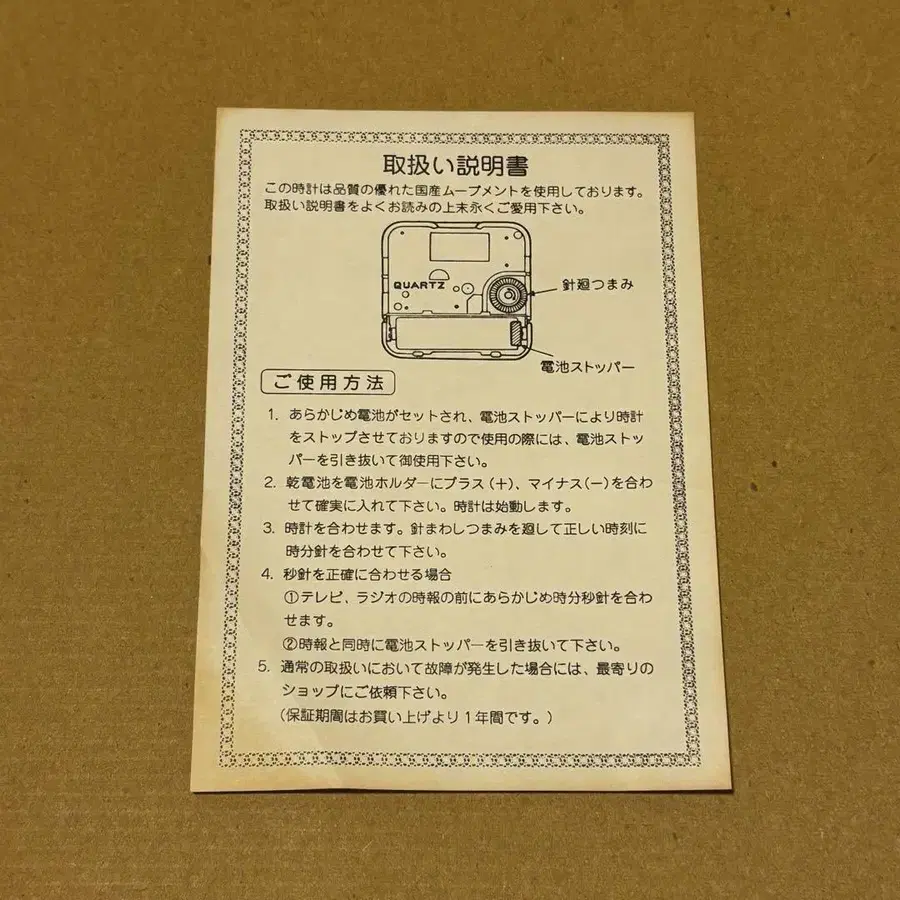 取扱い説明書
この時計は品質の優れた国産ムーブメントを使用しております。
取扱い説明書をよくお読みの上末永くご愛用下さい。
QUARTZ
針廻つまみ
電池ストッパー
ご使用方法
1. あらかじめ電池がセットされ、電池ストッパーにより時計
をストップさせておりますので使用の際には、電池ストッ
パーを引き抜いて御使用下さい。
2. 乾電池を電池ホルダーにプラス(+)、マイナス(−)を合わ
せて確実に入れて下さい。時計は始動します。
3. 時計を合わせます。針まわしつまみを廻して正しい時刻に
時分針を合わせて下さい。
4. 秒針を正確に合わせる場合
①テレビ、ラジオの時報の前にあらかじめ時分秒針を合わ
せます。
②時報と同時に電池ストッパーを引き抜いて下さい。
5. 通常の取扱いにおいて故障が発生した場合には、最寄りの
ショップにご依頼下さい。
(保証期間はお買い上げより1年間です。)